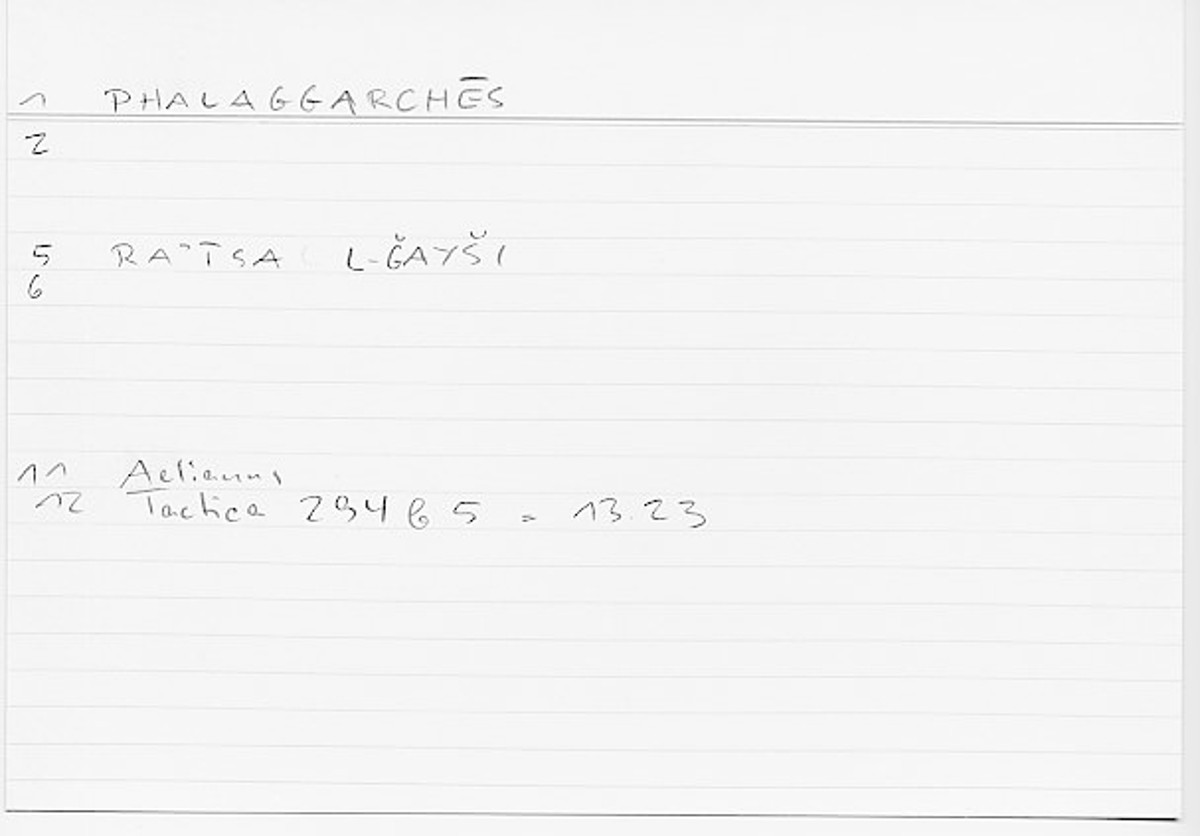 1 PHALAGGARCHĒS
2
5 RAʾĪSA L-ǦAYŠI
6
11 Aelianus
12 Tactica 294 b 5 = 13.23